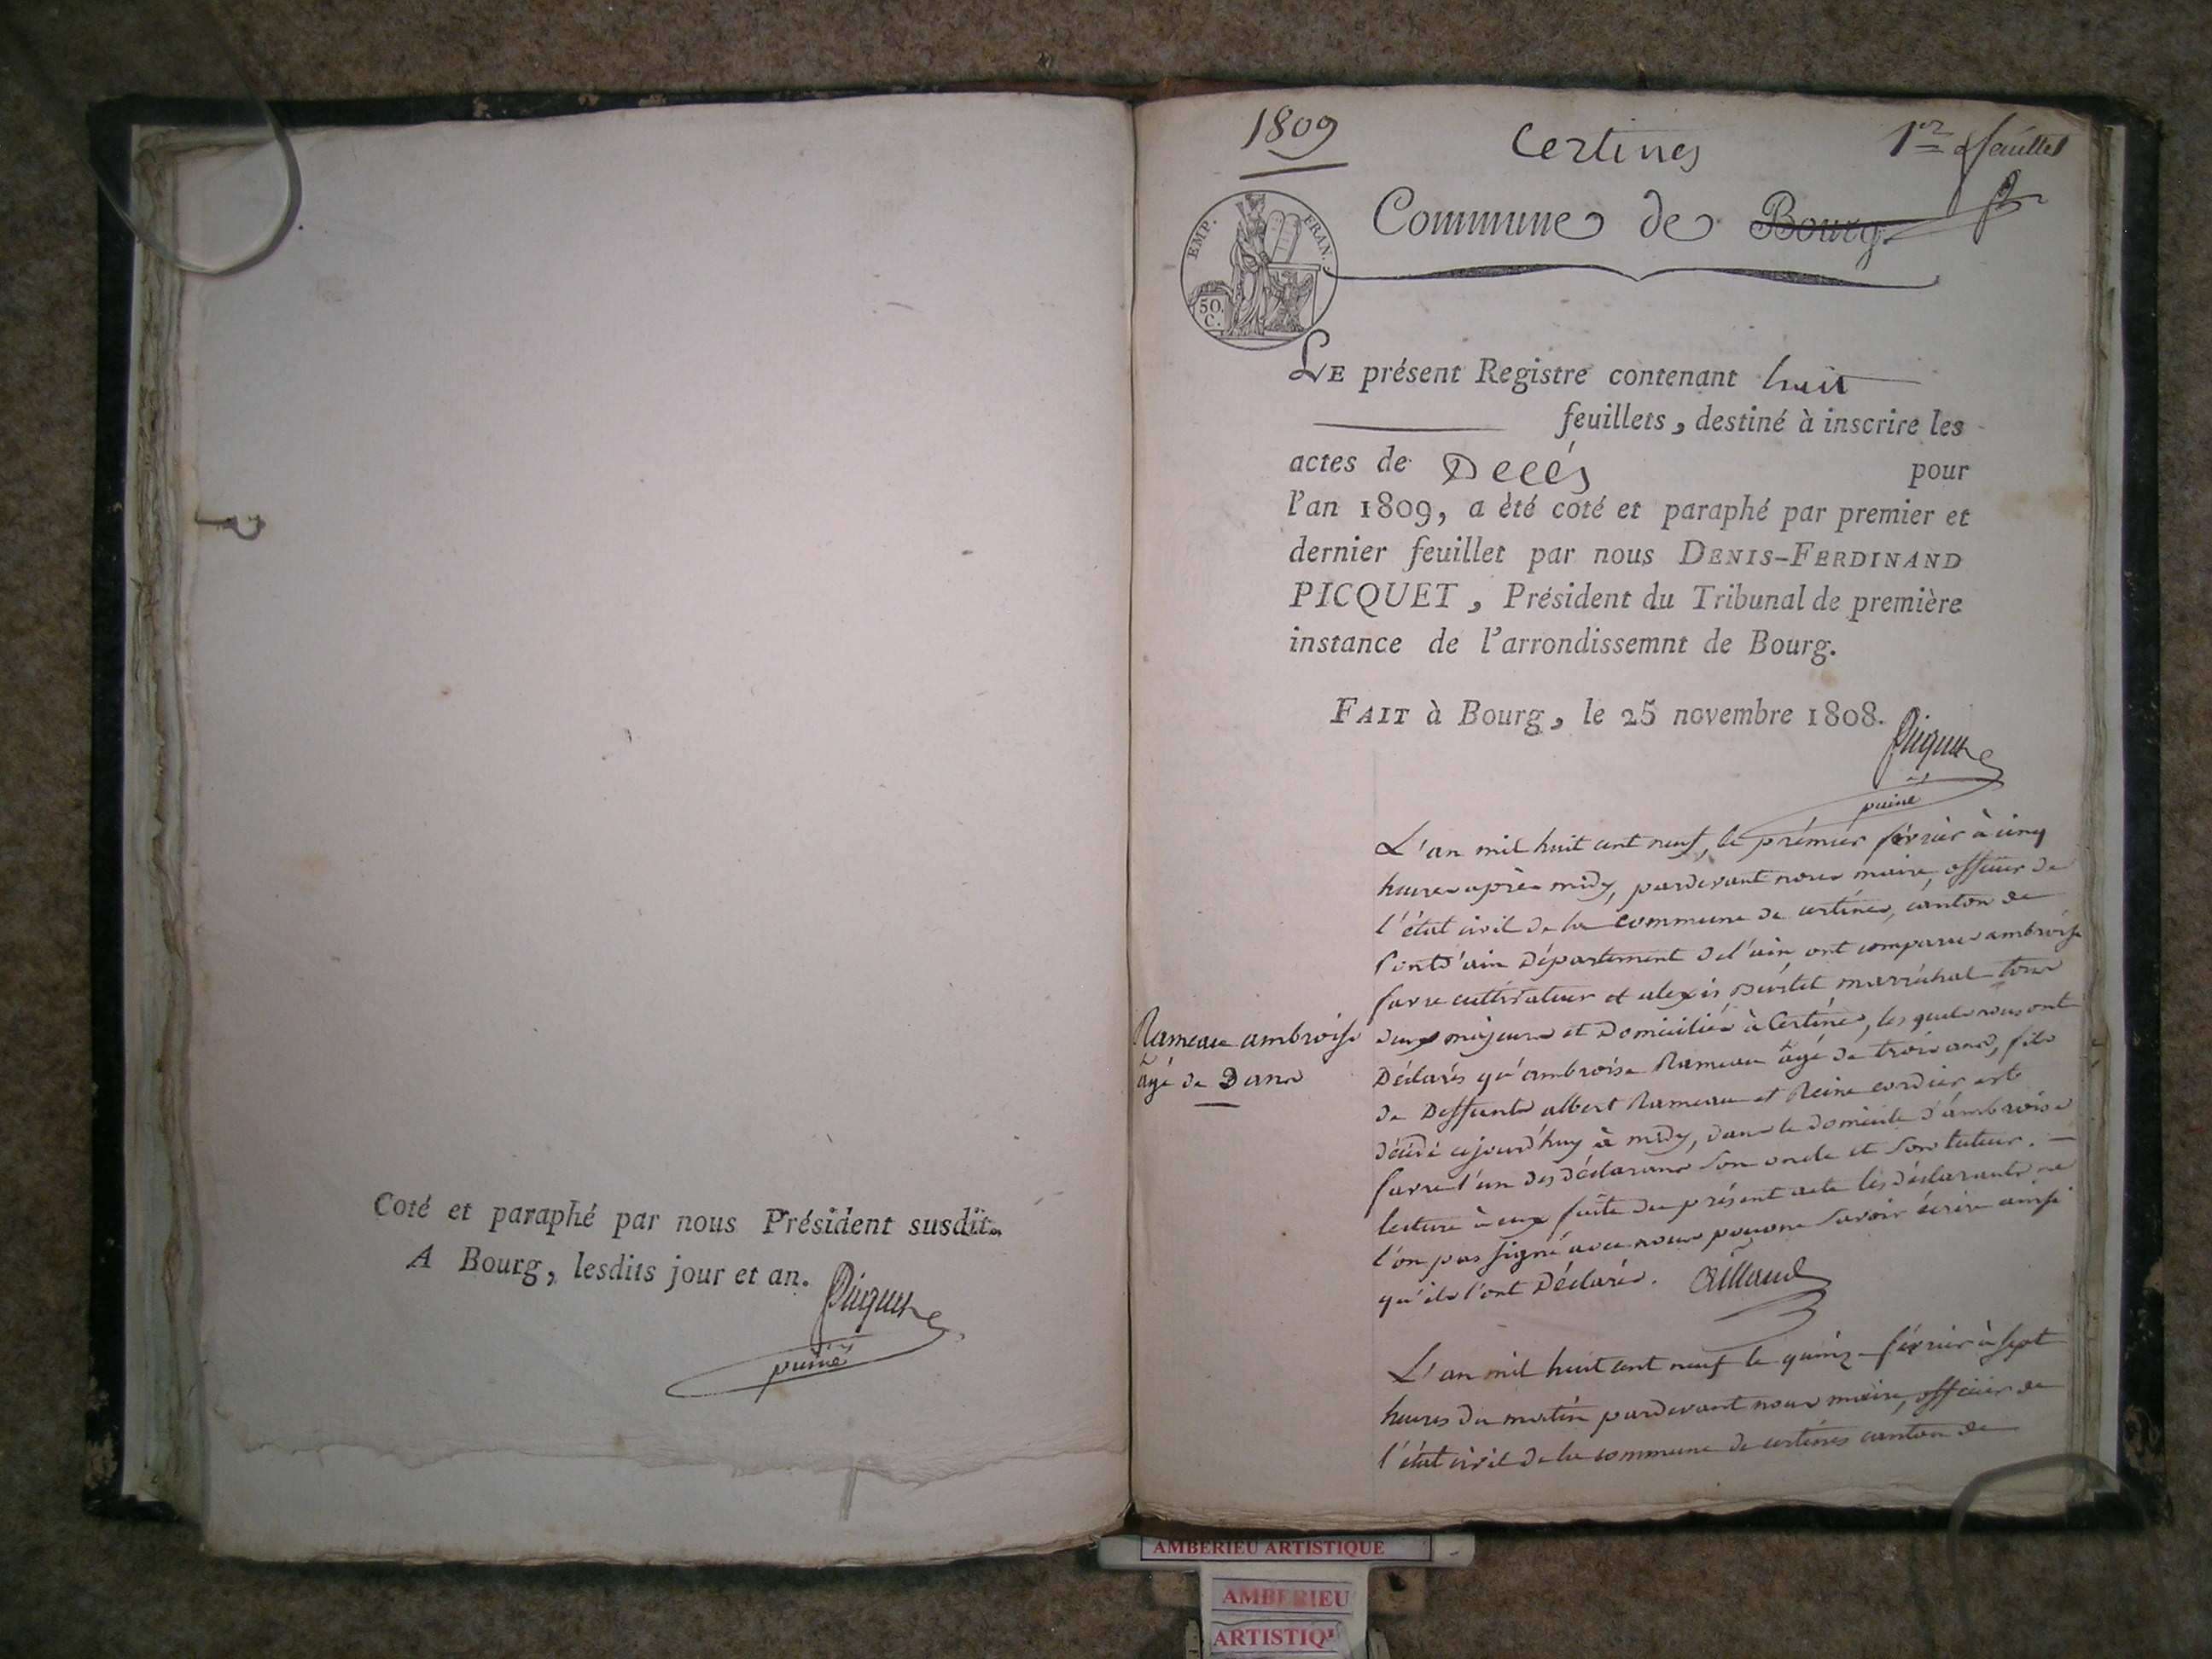 Coté et paraphé par nous Président susdit.
A Bourg, lesdits jour et an.
Picquet
puiné
1809
Certines
1er feuillet
EMP. FRAN.
50.
C.
Commune de Bourg
LE présent Registre contenant huit
feuillets, destiné à inscrire les
actes de Décés pour
l'an 1809, a été coté et paraphé par premier et
dernier feuillet par nous DENIS-FERDINAND
PICQUET, Président du Tribunal de première
instance de l'arrondissemnt de Bourg.
FAIT à Bourg, le 25 novembre 1808.
Picquet
puiné
Rameau ambroise
âgé de 3 ans
L'an mil huit cent neuf, le prémier février à cinq
heures après midy, pardevant nous maire, officier de
l'état civil de la commune de certines, canton de
Pontd'ain Département del'ain ont comparu ambroise
favre cultivateur et alexis marréchal tous
deux majeurs et Domiciliés à Certines, les quels nous ont
Déclarés qu'ambroise Rameau âgé de trois ans, fils
de Deffunts albert Rameau et Reine cordier est
décédé cejourd'huy à midy, dans le domicile d'ambroise
favre l'un des déclarans son oncle et son tuteur.
lecture à eux faite du présent acte les déclarants ne
l'on pas signé avec nous pour ne savoir écrire ainsi
qu'ils l'ont Déclaré.
L'an mil huit cent neuf le quinze février à sept
heures du matin pardevant nous maire, officier de
l'état civil de la commune de certines canton de
AMBERIEU ARTISTIQUE
AMBERIEU
ARTISTIQU